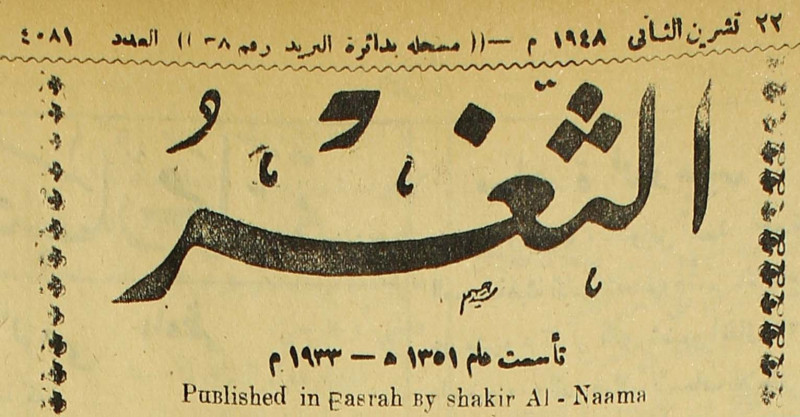 ٢٢ تشرين الثاني ١٩٤٨ م —(( مسجله بدائرة البريد رقم ٣٨ )) العدد ٤٠٨١
الثَّغْرُ
تأسست عام ١٣٥١ ه — ١٩٣٣ م
Published in Basrah By shakir Al - Naama